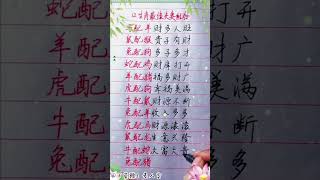 12生肖最佳夫妻配对
马配羊财多人旺
鼠配猴贵子有财
兔配狗多子多才
蛇配鸡财库打开
羊配猪福多财广
虎配狗幸福美满
牛配鼠财源不断
兔配羊收入多多
虎配马财源滚滚
鼠配龙生意兴隆
牛配蛇大富大贵
兔配猪
蛇配
羊配
虎配
牛配
兔配
打开
财广
美满
不断
多多